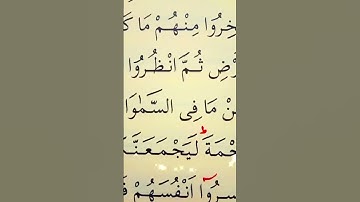 خِرُوا مِنْهُمْ مَا كَ
رْضِ ثُمَّ انْظُرُوْا
نْ مَا فِى السَّمٰوَا
حْمَةَ ؕ لَيَجْمَعَنَّ
سِرُوْۤا اَنْفُسَهُمْ فَ